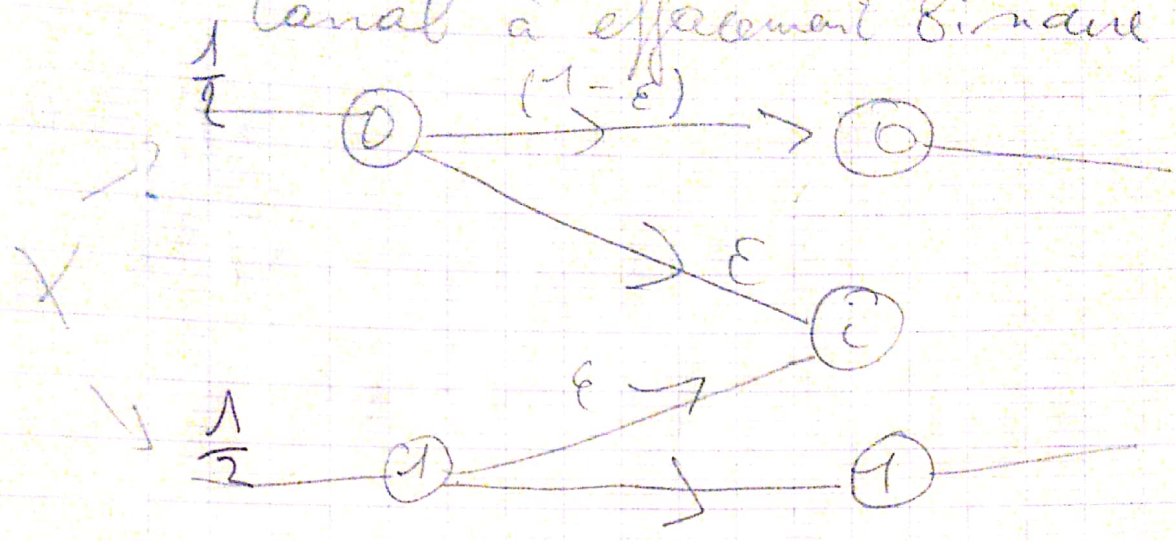 Canal à effacement binaire
1/2 0 (1-ε) 0
ε
X
i
ε
1/2 1 1